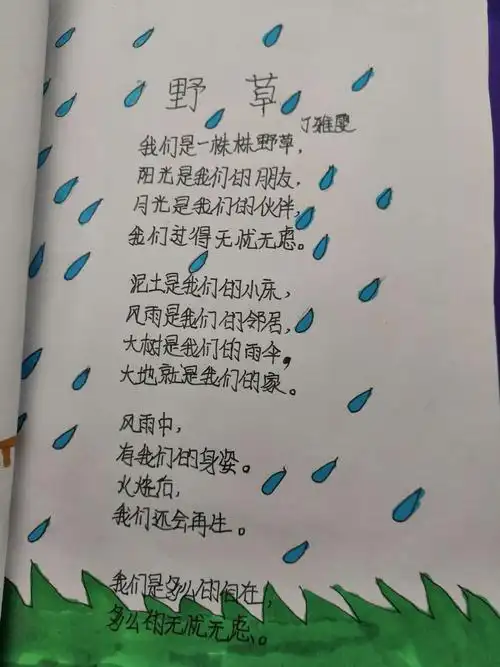 野草
丁雅雯
我们是一株株野草,
阳光是我们的朋友,
月光是我们的伙伴,
我们过得无忧无虑。
泥土是我们的小床,
风雨是我们的邻居,
大树是我们的雨伞,
大地就是我们的家。
风雨中,
有我们的身姿。
火烧后,
我们还会再生。
我们是多么的自在,
多么的无忧无虑。